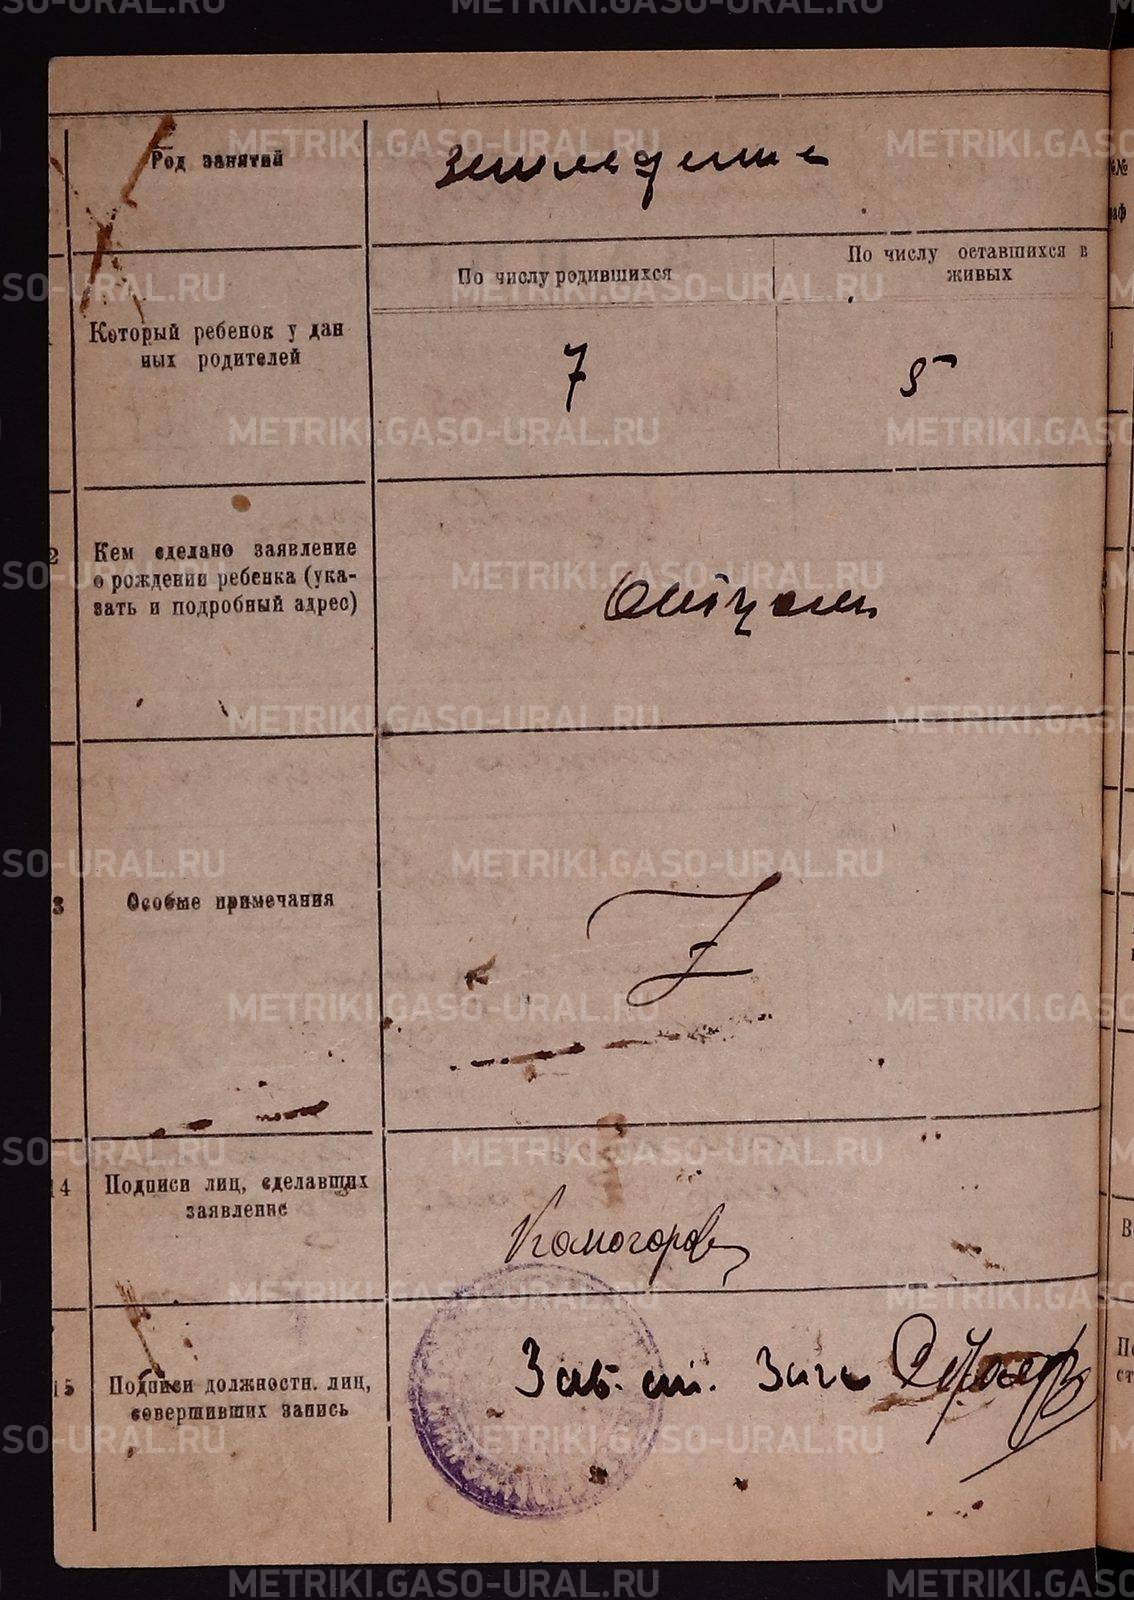 Род занятий
земледелие
Который ребенок у дан
ных родителей
По числу родившихся
По числу оставшихся в
живых
7
5
2
Кем сделано заявление
о рождении ребенка (ука-
зать и подробный адрес)
Отцом
3
Особые примечания
Z
14
Подписи лиц, сделавших
заявление
Комогоров
15
Подписи должностн. лиц,
совершивших запись
Зав. ст. Загс
METRIKI.GASO-URAL.RU